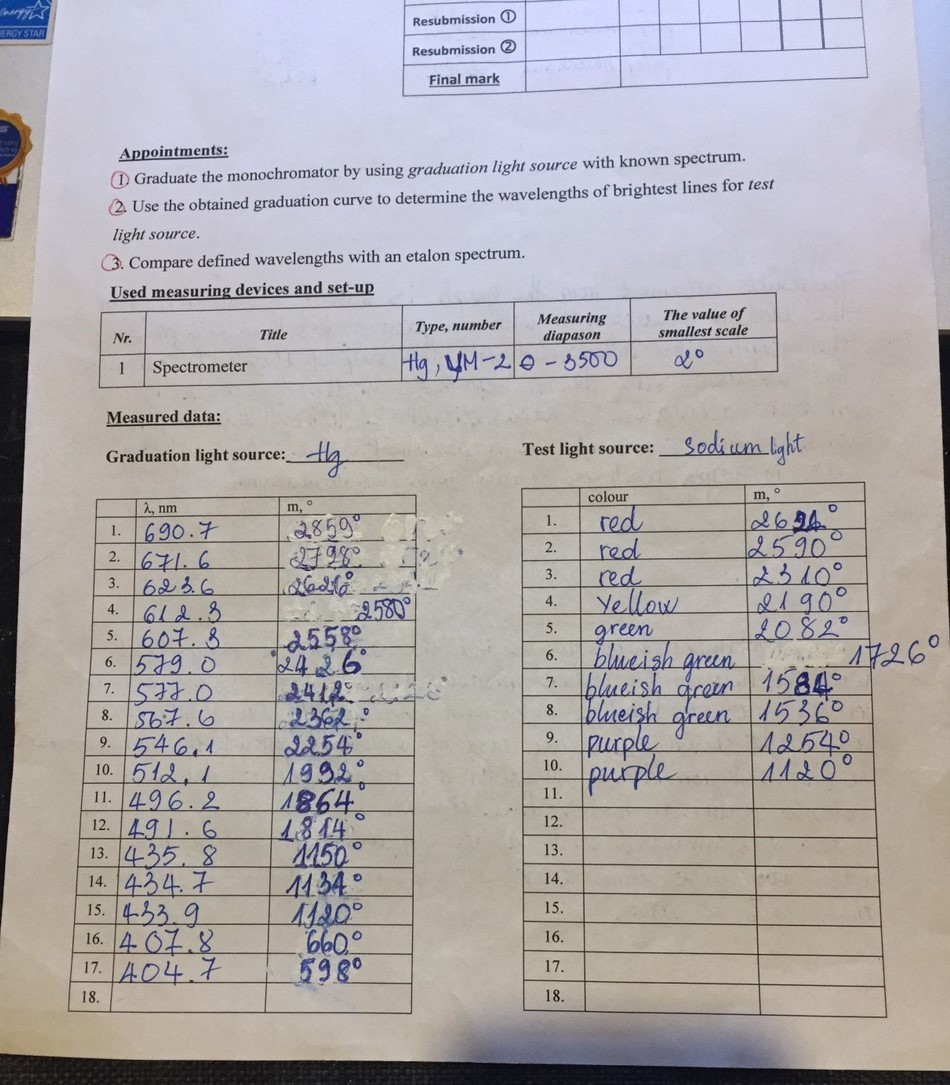 energy
ENERGY STAR
Resubmission ①
Resubmission ②
Final mark
Appointments:
1. Graduate the monochromator by using graduation light source with known spectrum.
2. Use the obtained graduation curve to determine the wavelengths of brightest lines for test
light source.
3. Compare defined wavelengths with an etalon spectrum.
Used measuring devices and set-up
Nr. Title Type, number Measuring diapason The value of smallest scale
1 Spectrometer Hg, YM-2 0 - 3500 2°
Measured data:
Graduation light source: Hg
λ, nm m, °
1. 690.7 2859°
2. 671.6 2798°
3. 623.6 2626°
4. 612.3 2580°
5. 607.3 2558°
6. 579.0 2426°
7. 577.0 2412°
8. 567.6 2362°
9. 546.1 2254°
10. 512.1 1992°
11. 496.2 1864°
12. 491.6 1814°
13. 435.8 1150°
14. 434.7 1134°
15. 433.9 1120°
16. 407.8 660°
17. 404.7 598°
18.
Test light source: Sodium light
colour m, °
1. red
2. red 2590°
3. red 2310°
4. Yellow 2190°
5. green 2082°
6. blueish green 1726°
7. blueish green 1584°
8. blueish green 1536°
9. purple 1254°
10. purple 1120°
11.
12.
13.
14.
15.
16.
17.
18.